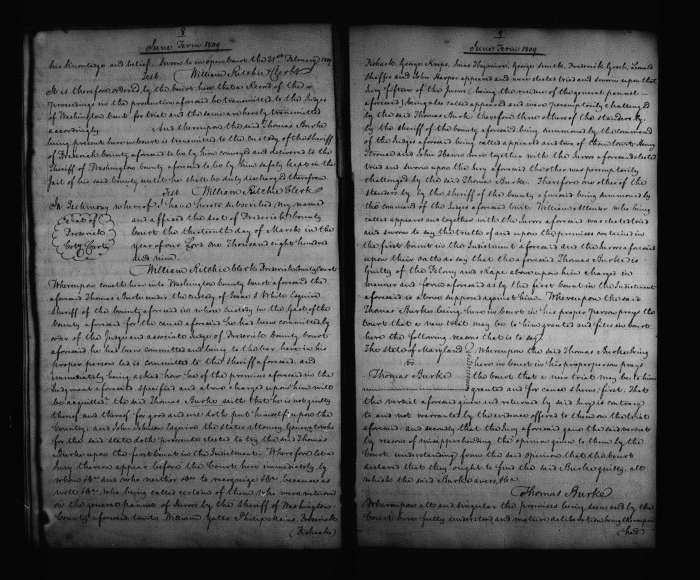 8
June Term 1809
his knowledge and belief. Sworn to in open Court the 21st February 1809
Test. William Ritchie Clerk
It is therefore ordered by the Court here that a Record of the
proceedings in the premises aforesaid be transmitted to the Judges
of Washington County Court for trial and the same are hereby transmitted
accordingly. And thereupon the said Thomas Burke
being present here in Court is transmitted to the custody of the Sheriff
of Frederick County aforesaid to be by him conveyed and delivered to the
Sheriff of Washington County aforesaid to be by him safely kept in the
Jail of his said County until he shall be duly discharged therefrom.
Test William Ritchie Clerk
In Testimony whereof I have hereto subscribed my name
Seal of
Frederick
Coty Court
and affixed the seal of Frederick County
Court the thirteenth day of March in the
year of our Lord one Thousand eight hundred
and nine.
William Ritchie Clerk Frederick County Court
Whereupon cometh here into Washington County Court aforesaid the
aforesaid Thomas Burke under the custody of Isaac S White Esquire
Sheriff of the County aforesaid in whose custody in the Gaol of the
County aforesaid for the cause aforesaid he had been committed by
order of the Judges and associate Judges of Frederick County Court
aforesaid he has been committed and being to the bar here in his
proper person he is committed to the Sheriff aforesaid. and
immediately being asked how he of the premises aforesaid in the
Indictment aforesaid specified and above charged upon him will
be acquitted, the said Thomas Burke saith that he is not guilty
thereof and thereof for good and evil doth put himself upon the
Country, and John Johnson Esquire the states attorney General who
for the said state doth prosecute elects to try the said Thomas
Burke upon the first Count in the Indictment. Wherefore let a
Jury thereon appear before the Court here immediately by
whom &c and who neither &c to recognize &c. because as
well &c who being called certain of them who were returned
on the general pannel of Jurors by the Sheriff of Washington
County aforesaid towit, William Yates Philip Mains, Frederick
(Kishack)
9
June Term 1809
Kishack, George Knips, Jonas George Smith, Frederick Grosh,
Shaffer and John Harper appeared and were elected tried and sworn upon that
Jury fifteen of the Jurors (being the residue of the general pannel
aforesaid) being also called appeared and were peremptorily challenged
by the said Thomas Burke therefore three others of the standers by,
by the sheriff of the County aforesaid being summoned by the command
of the Judges aforesaid being called appeared and two of them towit Henry
and John together with the Jurors aforesaid elected
tried and sworn upon the Jury aforesaid the other was peremptorily
challenged by the said Thomas Burke. Therefore one other of the
standers by, by the Sheriff of the County aforesaid being summoned by
the command of the Judges aforesaid towit. William who being
called appears and together with the Jurors aforesaid was elected tried
and sworn to say the truth of and upon the premises contained in
the first Count in the Indictment aforesaid and the Jurors aforesaid
upon their oaths do say that the aforesaid Thomas Burke is
Guilty of the Felony and Rape above upon him charged in
manner and form aforesaid as by the first Count in the Indictment
aforesaid is above supposed against him. Whereupon the said
Thomas Burke being here in Court in his proper person prays the
Court that a new trial may be to him granted and files in Court
here the following reasons that is to say.
The State of Maryland
vs
Thomas Burke
Whereupon the said Thomas Burke being
here in Court in his proper person prays
the Court that a new trial may be to him
granted and for cause shews, first, That
the verdict aforesaid given and returned by said Jury is contrary
to and not warranted by the evidence offered to them on the trial
aforesaid and secondly that the Jury aforesaid gave the said verdict
by reason of misapprehending the opinion given to them by the
Court, understanding from the said opinion that the Court
declared that they ought to find the said Burke guilty, all
which the said Burke avers, &c.
Thomas Burke
Whereupon all and singular the premises being seen and by the
Court here fully understood and mature deliberation being thereupon
(had)